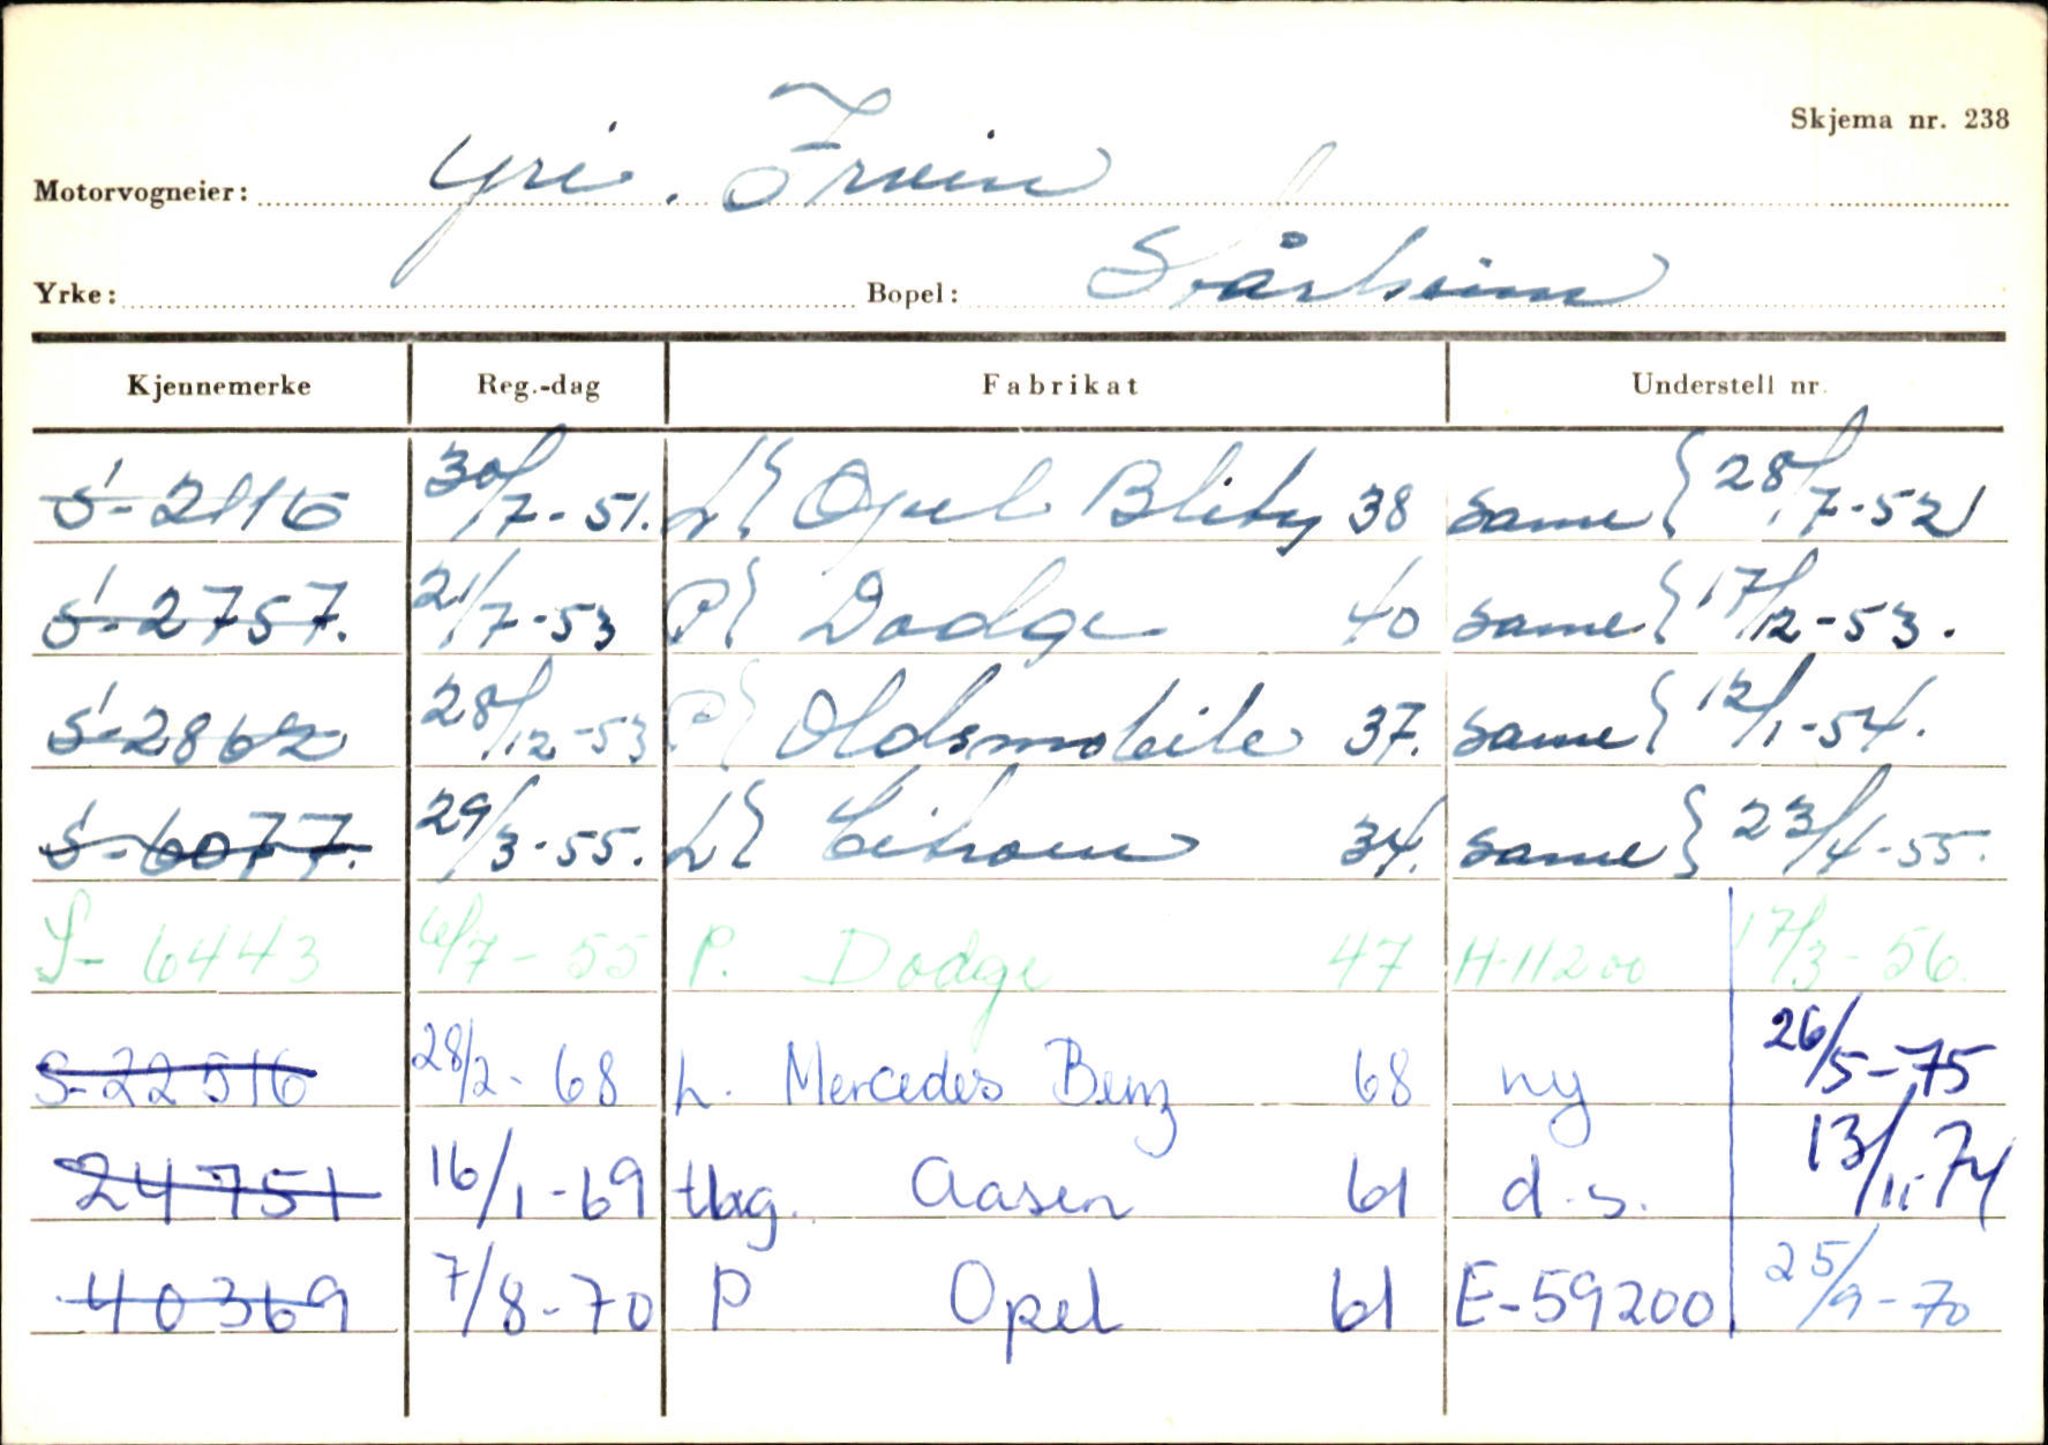 Skjema nr. 238
Motorvogneier: Yri. Irvin
Yrke: Bopel: Sårheim
Kjennemerke Reg.-dag Fabrikat Understell nr.
S-2116 30/7-51. L{ Opel Blitz 38 same { 28/7-52
S-2757. 21/7-53 P{ Dodge 40 same { 17/12-53.
S-2862 28/12-53 P{ Oldsmobile 37. same { 12/1-54.
S-6077. 29/3-55. L{ Citroen 34. same } 23/4-55.
S-6443 6/7-55 P. Dodge 47 H-11200 17/3-56.
S-22516 28/2-68 L. Mercedes Benz 68 ny 26/5-75
24751 16/1-69 tbg. Aasen 61 d.s. 13/11-74
40369 7/8-70 P Opel 61 E-59200 25/9-70